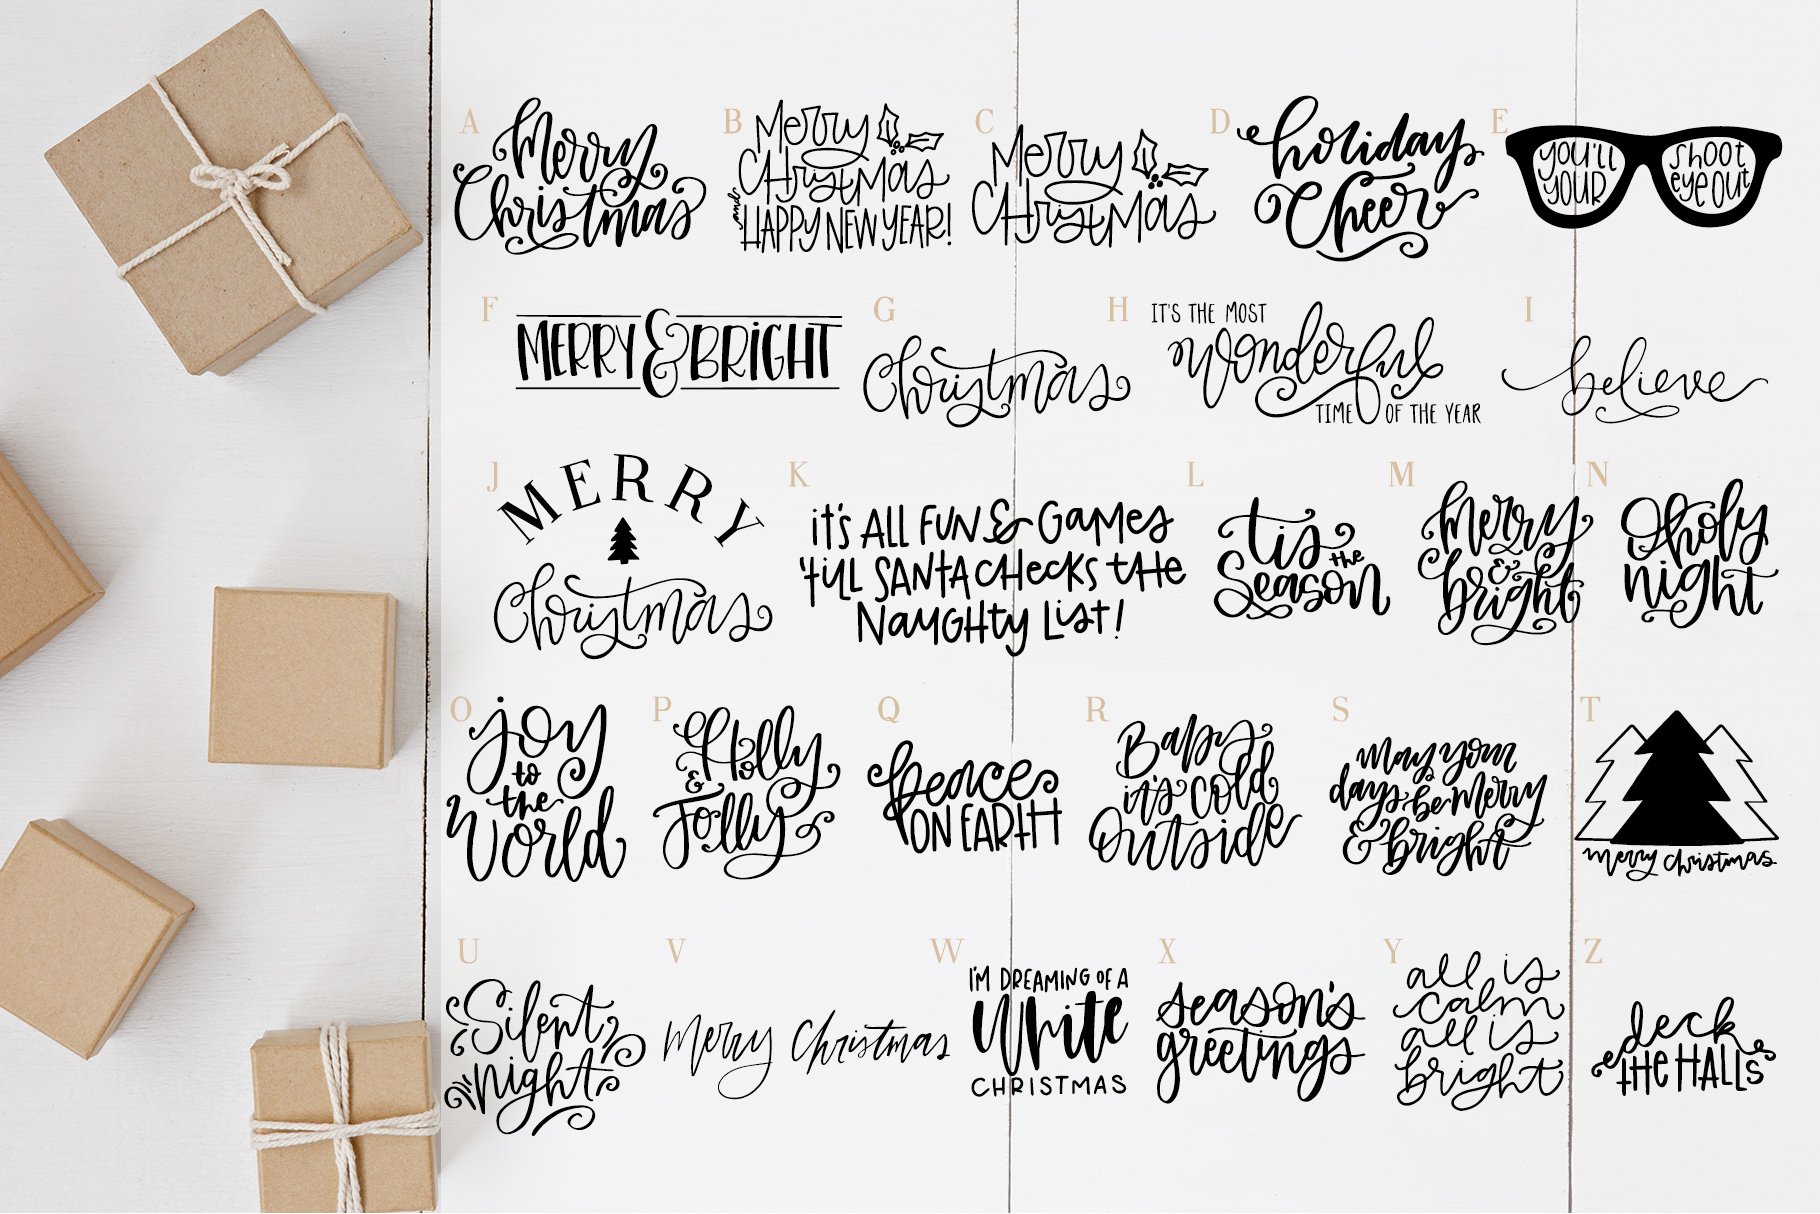 A
Merry
Christmas
B
Merry
Christmas
and a
HAPPY NEW YEAR!
C
Merry
Christmas
D
holiday
Cheer
E
you'll
your
shoot
eye out
F
MERRY & BRiGHT
G
Christmas
H
IT'S THE MOST
wonderful
TIME OF THE YEAR
I
believe
J
MERRY
Christmas
K
it's ALL FUN & GAMES
'till SANTA CHecks the
NAUGHty List!
L
'tis
the
Season
M
Merry
&
bright
N
O holy
night
O
joy
to
the
World
P
Holly
&
Jolly
Q
Peace
ON EARTH
R
Baby
it's cold
Outside
S
may your
days be merry
& bright
T
merry christmas
U
Silent
night
V
Merry Christmas
W
I'M DREAMING OF A
White
CHRISTMAS
X
season's
greetings
Y
all is
calm
all is
bright
Z
deck
THE HALLS